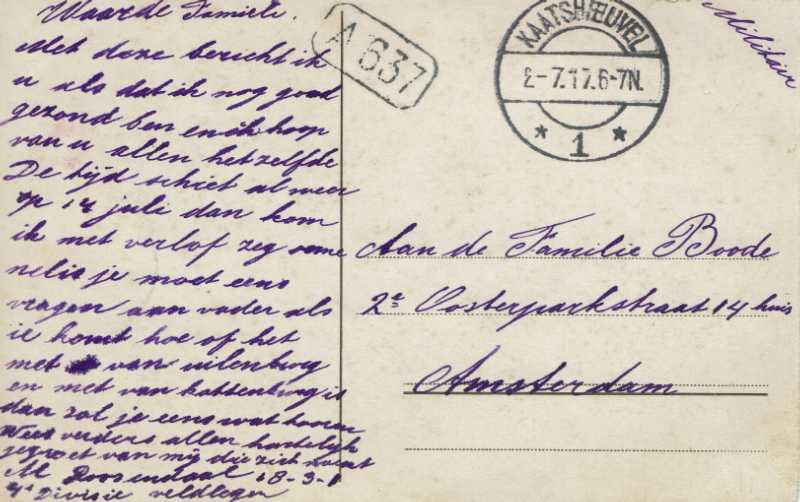 Waarde Familie.
Met deze bericht ik
u als dat ik nog goed
gezond ben en ik hoop
van u allen het zelfde
De tijd schiet al weer
op 14 juli dan kom
ik met verlof zeg ome
nelis je moet eens
vragen aan vader als
ie komt hoe of het
met van uilenburg
en met van kattenburg is
dan zal je eens wat hooren
Wees verders allen hartelijk
gegroet van mij die zich noemt
M Roosendaal 18-3-1
4e Divisie veldleger
A 637
KAATSHEUVEL
2-7.17.6-7N.
* 1 *
Militair
Aan de Familie Boode
2e Oosterparkstraat 14 huis
Amsterdam